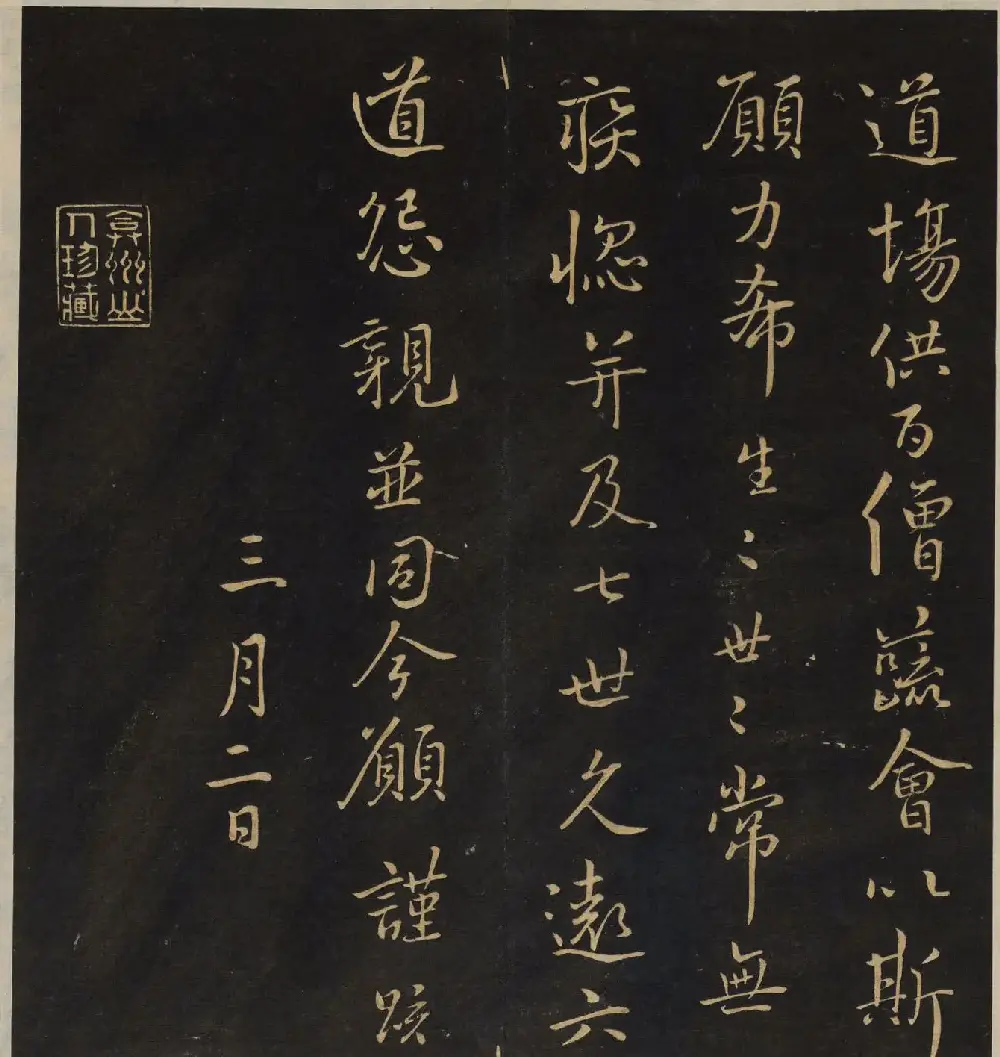 道場供百僧蔬會以斯
願力希生〻世〻常無
疾惱并及七世久遠六
道怨親並同今願謹疏
三月二日
弇州山
人珍藏